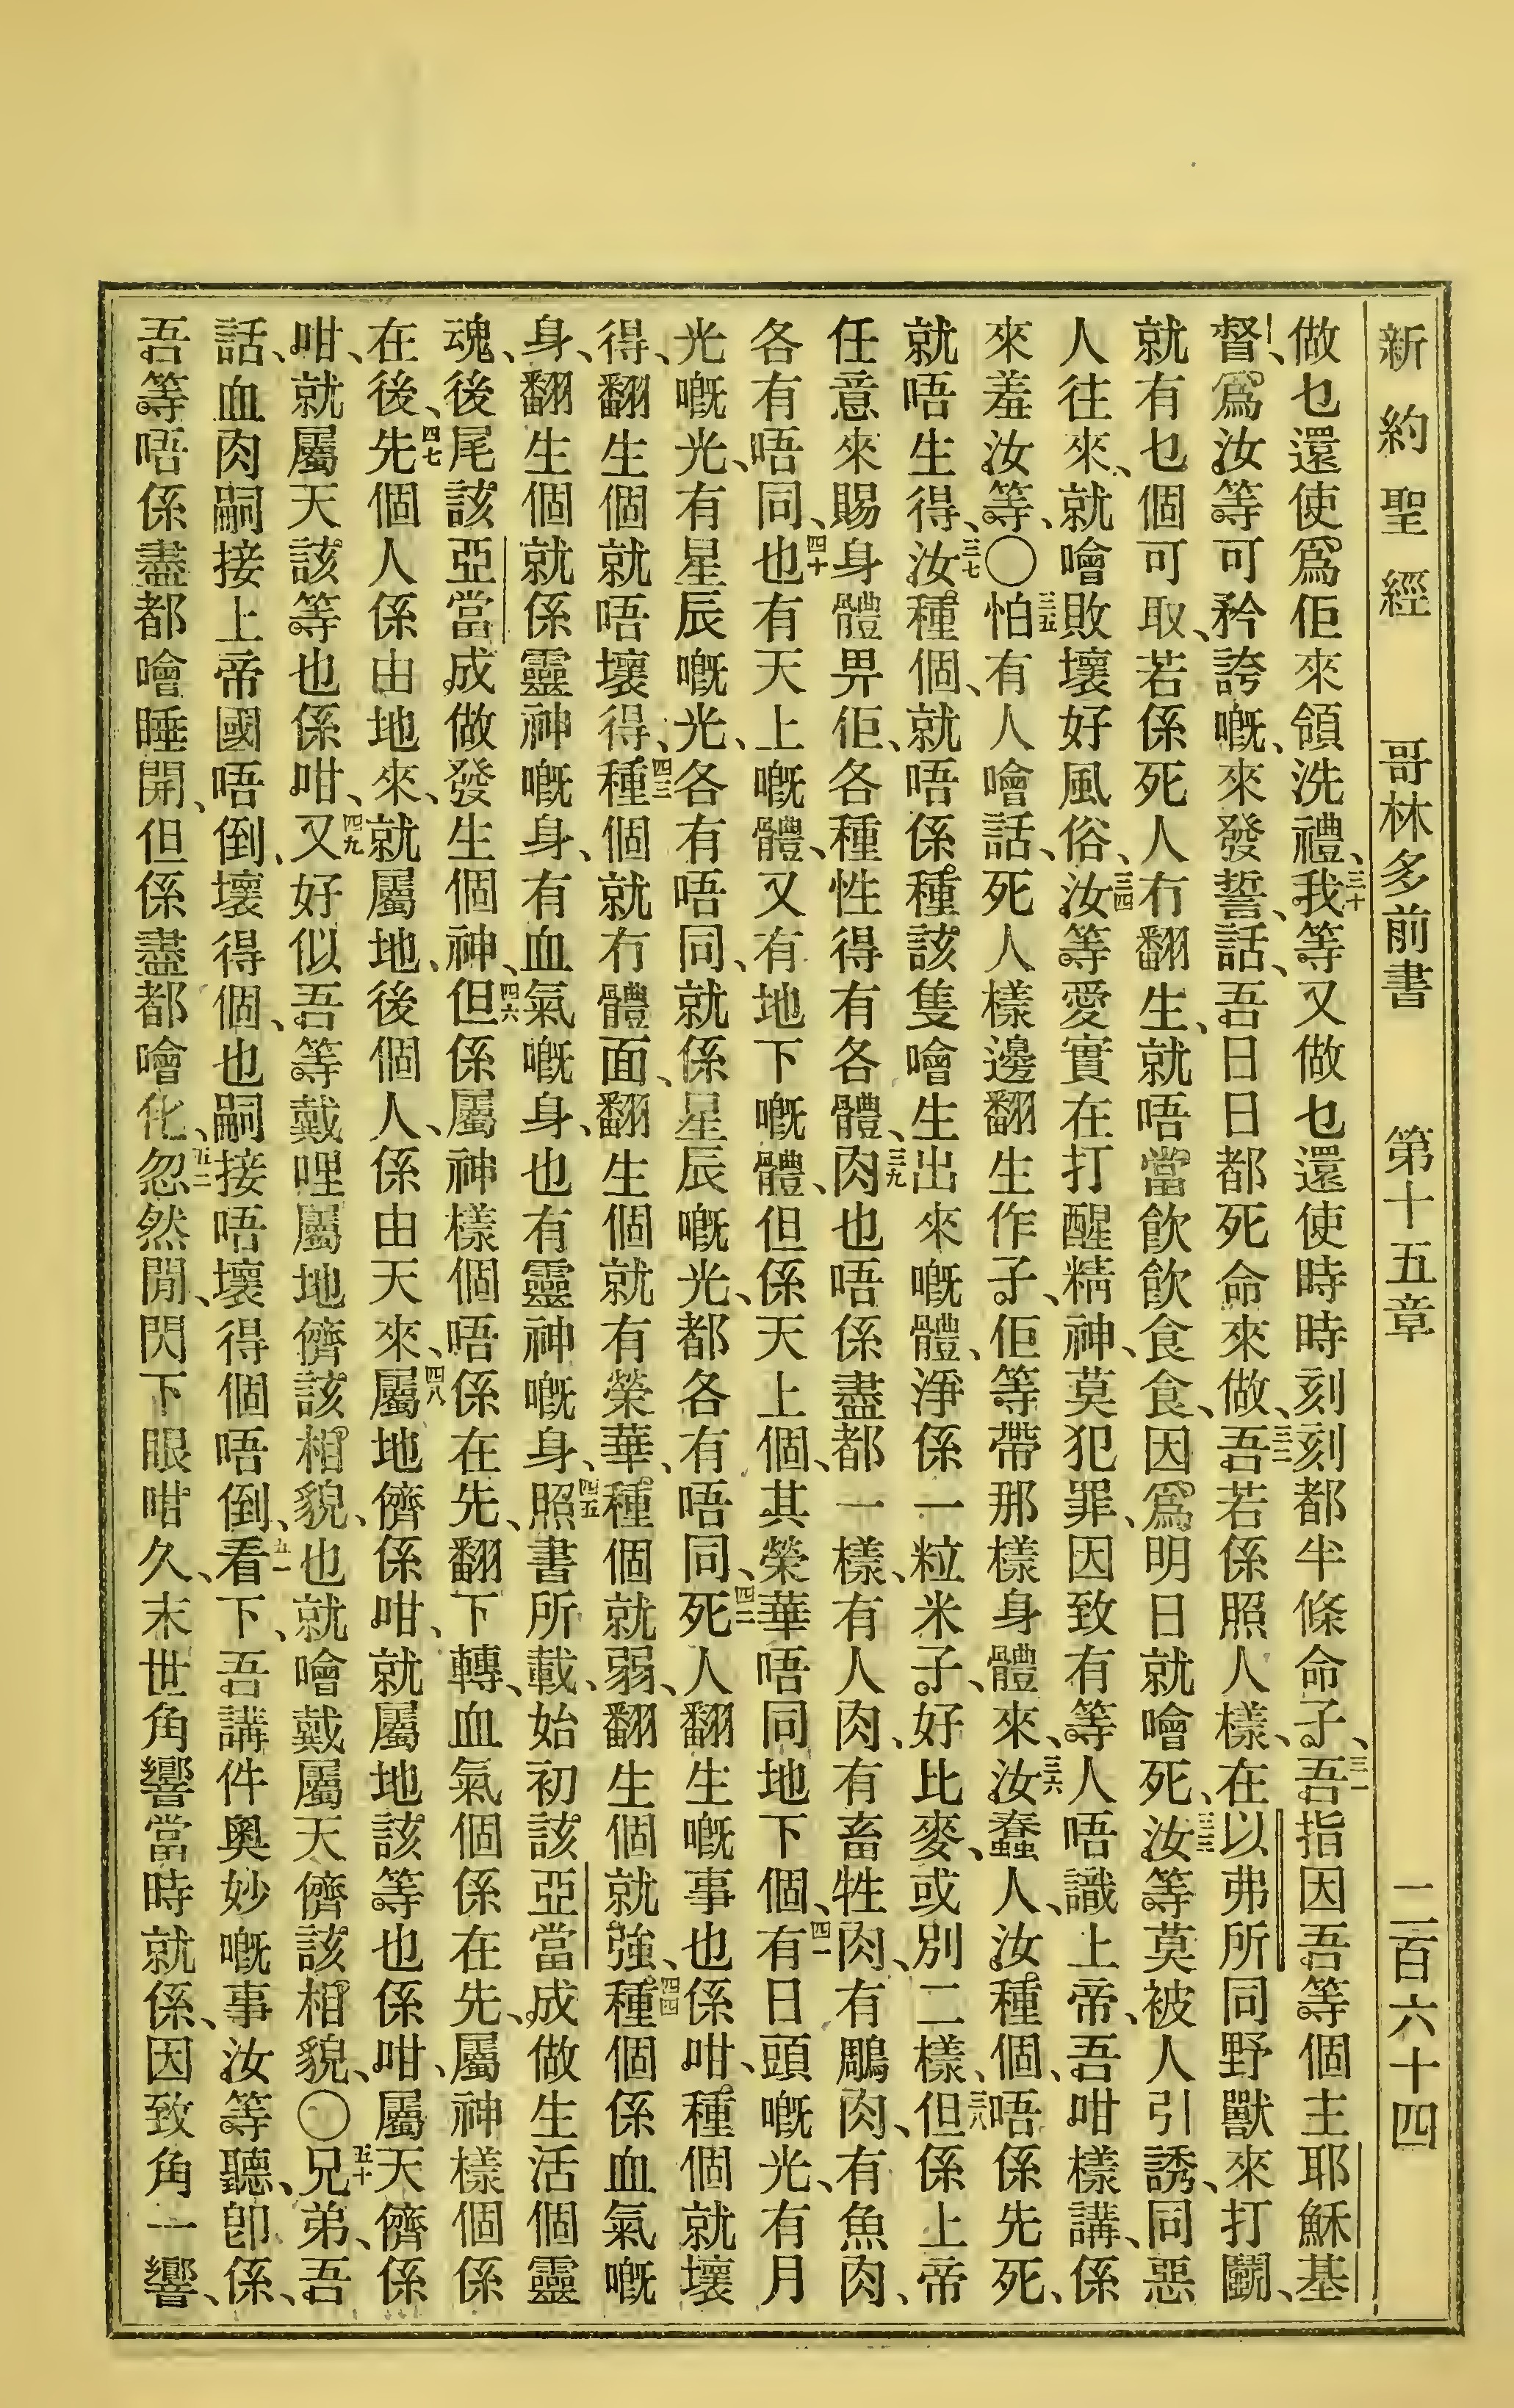 新約聖經 哥林多前書 第十五章 二百六十四
做乜還使爲佢來領洗禮、三十我等又做乜還使時時刻刻都半條命子、三一吾指因吾等個主耶穌基
督、爲汝等可矜誇嘅、來發誓、話、吾日日都死命來做、三二吾若係照人樣、在以弗所同野獸來打鬭、
就有乜個可取、若係死人冇翻生、就唔當飲飲食食、因爲明日就噲死、三三汝等莫被人引誘、同惡
人往來、就噲敗壞好風俗、三四汝等愛實在打醒精神、莫犯罪、因致有等人唔識上帝、吾咁樣講、係
來羞汝等、〇三五怕有人噲話、死人樣邊翻生作子、佢等帶那樣身體來、三六汝蠢人、汝種個、唔係先死、
就唔生得、三七汝種個、就唔係種該隻噲生出來嘅體、淨係一粒米子、好比麥、或別二樣、三八但係上帝
任意來賜身體畀佢、各種性得有各體、三九肉也唔係盡都一樣、有人肉、有畜牲肉、有鵰肉、有魚肉、
各有唔同、四十也有天上嘅體、又有地下嘅體、但係天上個、其榮華唔同地下個、四一有日頭嘅光、有月
光嘅光、有星辰嘅光、各有唔同、就係星辰嘅光、都各有唔同、四二死人翻生嘅事也係咁、種個就壞
得、翻生個就唔壞得、四三種個就冇體面、翻生個就有榮華、種個就弱、翻生個就強、四四種個係血氣嘅
身、翻生個就係靈神嘅身、有血氣嘅身、也有靈神嘅身、四五照書所載、始初該亞當成做生活個靈
魂、後尾該亞當成做發生個神、四六但係屬神樣個唔係在先、翻下轉、血氣個係在先、屬神樣個係
在後、四七先個人係由地來、就屬地、後個人、係由天來、四八屬地儕係咁、就屬地該等也係咁、屬天儕係
咁、就屬天該等也係咁、四九又好似吾等戴哩屬地儕該相貌、也就噲戴屬天儕該相貌、〇五十兄弟、吾
話、血肉嗣接上帝國唔倒、壞得個、也嗣接唔壞得個唔倒、五一看下、吾講件奧妙嘅事汝等聽、卽係、
吾等唔係盡都噲睡開、但係盡都噲化、五二忽然閒、閃下眼咁久、末世角響當時就係、因致角一響、